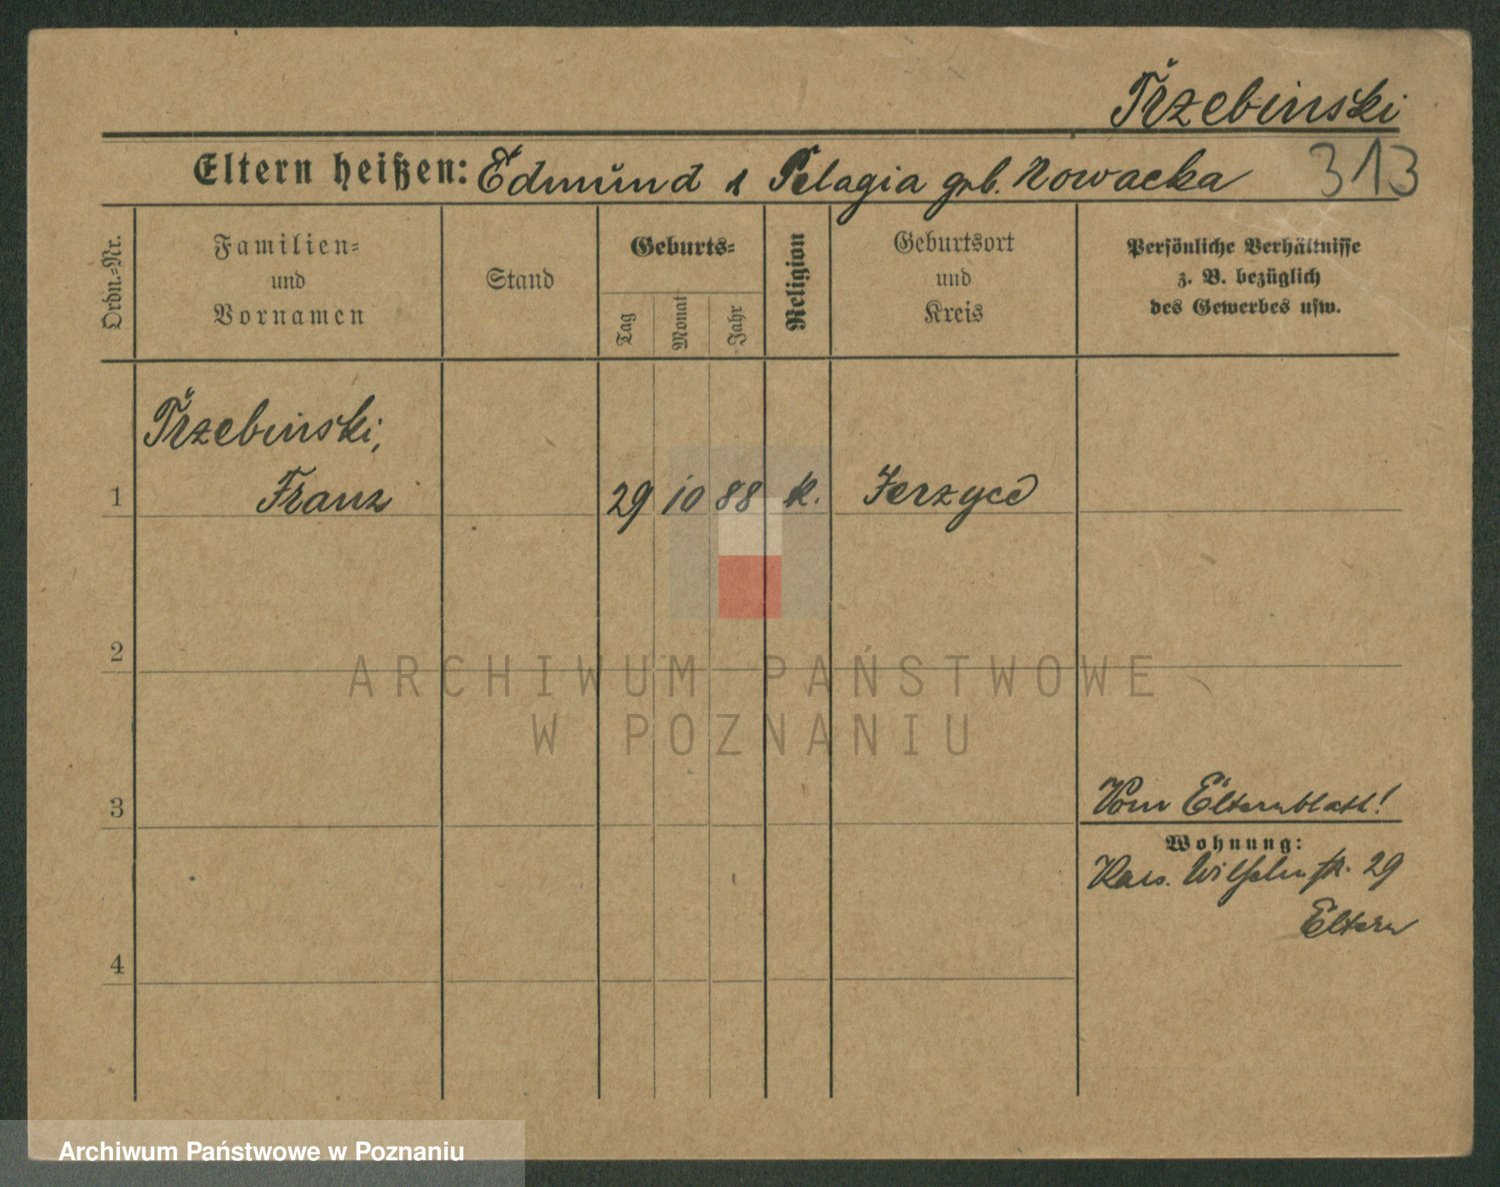 Trzebinski
Eltern heißen: Edmund u Pelagia geb. Nowacka 313
Ordn.-Nr.
Familien-
und
Vornamen
Stand
Geburts-
Tag
Monat
Jahr
Religion
Geburtsort
und
Kreis
Persönliche Verhältnisse
z. B. bezüglich
des Gewerbes usw.
Trzebinski,
1 Franz 29 10 88 k. Jerzyce
2
ARCHIWUM PAŃSTWOWE
W POZNANIU
3 Vom Elternblatt!
Wohnung:
Kais. Wilhelmstr. 29
Eltern
4
Archiwum Państwowe w Poznaniu